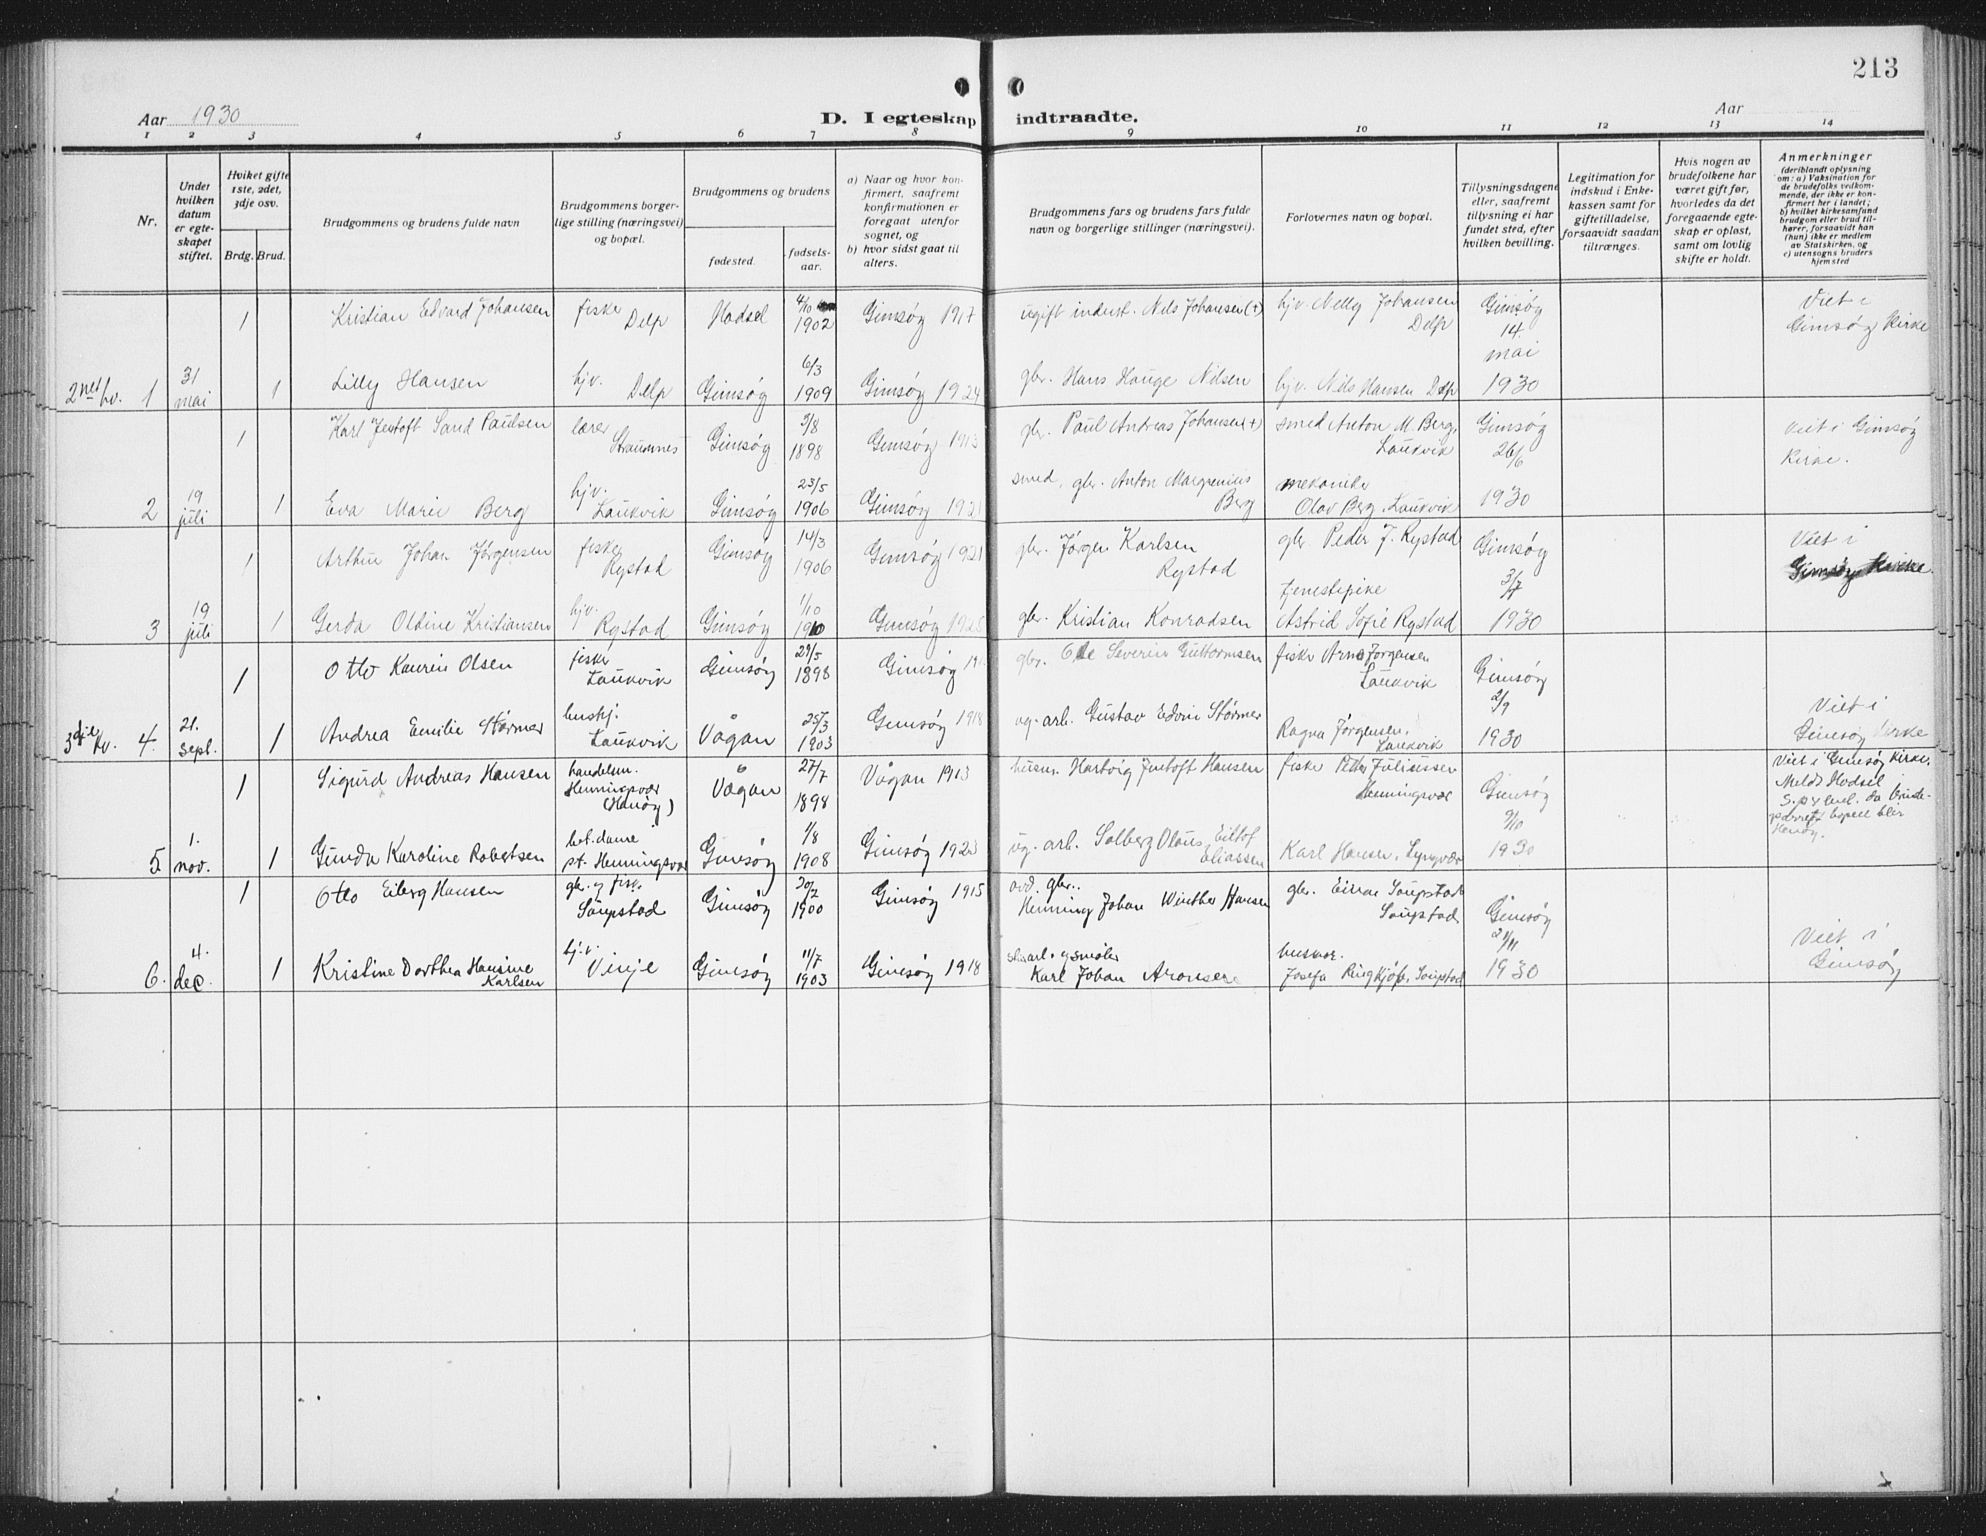 213
Aar 1930
D. I egteskap indtraadte.
Aar
1 2 3 4 5 6 7 8 9 10 11 12 13 14
Nr.
Under hvilken datum er egte-skapet stiftet.
Hviket gifte 1ste, 2det, 3dje osv.
Brdg. Brud.
Brudgommens og brudens fulde navn
Brudgommens borger-lige stilling (næringsvei) og bopæl.
Brudgommens og brudens
fødested.
fødsels-aar.
a) Naar og hvor kon-firmert, saafremt konfirmationen er foregaat utenfor sognet, og
b) hvor sidst gaat til alters.
Brudgommens fars og brudens fars fulde navn og borgerlige stillinger (næringsvei).
Forlovernes navn og bopæl.
Tillysningsdagene eller, saafremt tillysning ei har fundet sted, efter hvilken bevilling.
Legitimation for indskud i Enke-kassen samt for giftetilladelse, forsaavidt saadan tiltrænges.
Hvis nogen av brudefolkene har været gift før, hvorledes da det foregaaende egte-skap er opløst, samt om lovlig skifte er holdt.
Anmerkninger
(deriblandt oplysning om: a) Vaksination for de brudefolks vedkom-mende, der ikke er kon-firmert her i landet; b) hvilket kirkesamfund brudgom eller brud til-hører, forsaavidt han (hun) ikke er medlem av Statskirken, og c) utensogns bruders hjemsted
1 Kristian Edvard Johansen fisker Delp Hadsel 4/10 1902 Gimsøy 1917 ugift indust. Nils Johansen (+) hjv. Nelly Johansen Delp Gimsøy 14. mai 1930 Viet i Gimsøy Kirke
2net kv. 1 31 mai 1 Lilly Hansen hjv. Delp Gimsøy 6/3 1909 Gimsøy 1924 gbr. Hans Hauge Nilsen hjv. Nils Hansen Delp
1 Karl Jentoft Sand Paulsen lærer Straumnes Gimsøy 3/8 1898 Gimsøy 1913 gbr. Paul Andreas Johansen (+) smed Anton M. Berg, Laukvik Gimsøy 26/6 1930 Viet i Gimsøy Kirke.
2 19 juli 1 Eva Marie Berg hjv. Laukvik Gimsøy 23/5 1906 Gimsøy 1921 smed, gbr. Anton Margrenius Berg mekaniker Olav Berg, Laukvik
1 Arthur Johan Jørgensen fisker Rystad Gimsøy 14/3 1906 Gimsøy 1921 gbr. Jørgen Karlsen Rystad gbr. Peder J. Rystad Gimsøy 3/7 1930 Viet i Gimsøy Kirke.
3 19 juli 1 Gerda Oldine Kristiansen hjv. Rystad Gimsøy 1/10 1910 Gimsøy 1925 gbr. Kristian Konradsen tjenestepike Astrid Sofie Rystad
1 Otto Kaurin Olsen fisker Laukvik Gimsøy 29/5 1898 Gimsøy gbr. Ole Severin Guttormsen fisker Arne Jørgensen Laukvik Gimsøy 2/9 1930 Viet i Gimsøy Kirke
3dje kv. 4. 21. sept. 1 Andrea Emilie Størmer hushj. Laukvik Vågan 25/3 1903 Gimsøy 1918 ug. arb. Gustav Edvin Størmer Ragna Jørgensen, Laukvik
1 Sigurd Andreas Hansen handelsm. Henningsvær (Hanøy) Vågan 27/7 1898 Vågan 1913 husm. Hartvig Jentoft Hansen fisker Peder Juliussen Henningsvær Gimsøy 9/10 1930 Viet i Gimsøy Kirke. Meldt Hadsel
5 1. nov. 1 Gunda Karoline Robertsen bet.dame st. Henningsvær Gimsøy 1/8 1908 Gimsøy 1923 ug. arb. Solberg Olaus Eiltof Eliassen Karl Hansen, Lyngvær
1 Otto Eiberg Hansen gbr. og fisk. Saupstad Gimsøy 30/7 1900 Gimsøy 1915 avd. gbr. Henning Johan Winther Hansen gbr. Einar Saupstad Saupstad Gimsøy 21/11 1930 Viet i Gimsøy
6. 4. dec. 1 Kristine Dorthea Hansine Karlsen hjv. Vinje Gimsøy 11/7 1903 Gimsøy 1918 Karl Johan Aronsen Josefa Ringkjøb, Saupstad